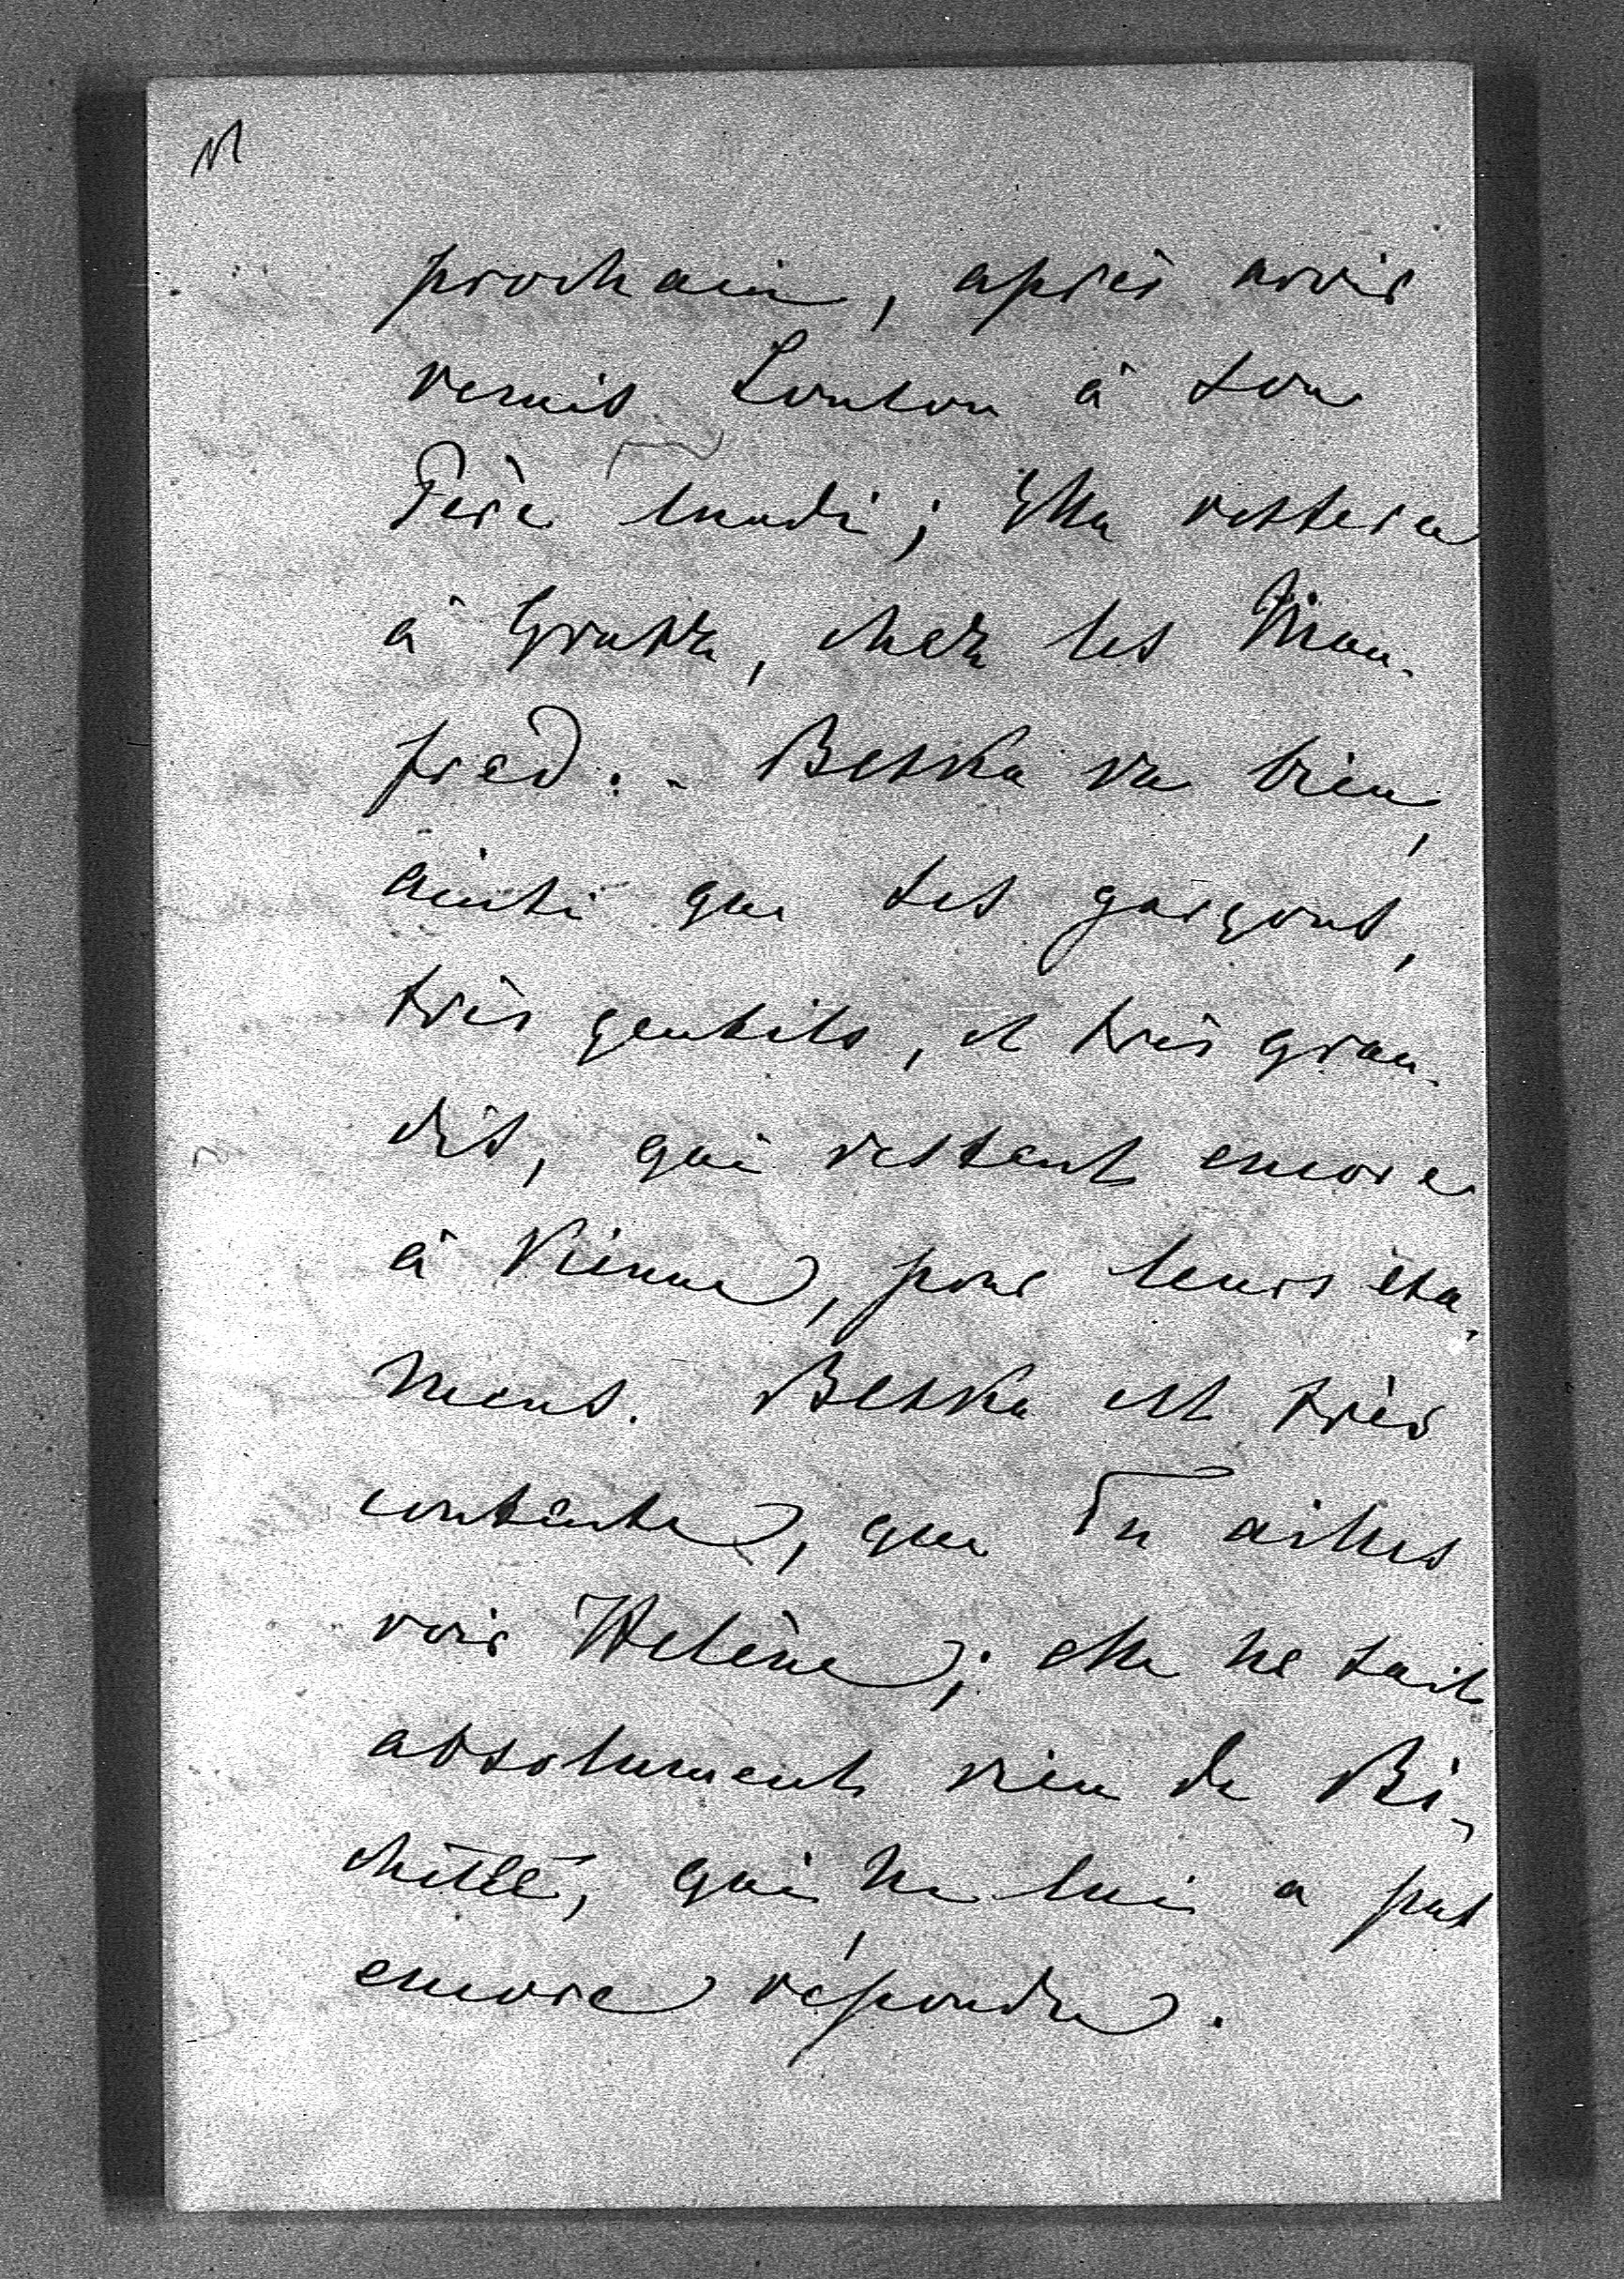 prochain, après avoir
remis Loulou à son
Père lundi; Ella restera
à Gratz, chez les Man-
fred. - Beska va bien,
ainsi que ses garçons,
très gentils, et très gran-
dis, qui restent encore
à Vienne, pour leurs exa-
mens. Beska est très
contente, que Tu ailles
voir Helène; elle ne sait
absolument rien de Bi-
chette, qui ne lui a pas
encore répondu.